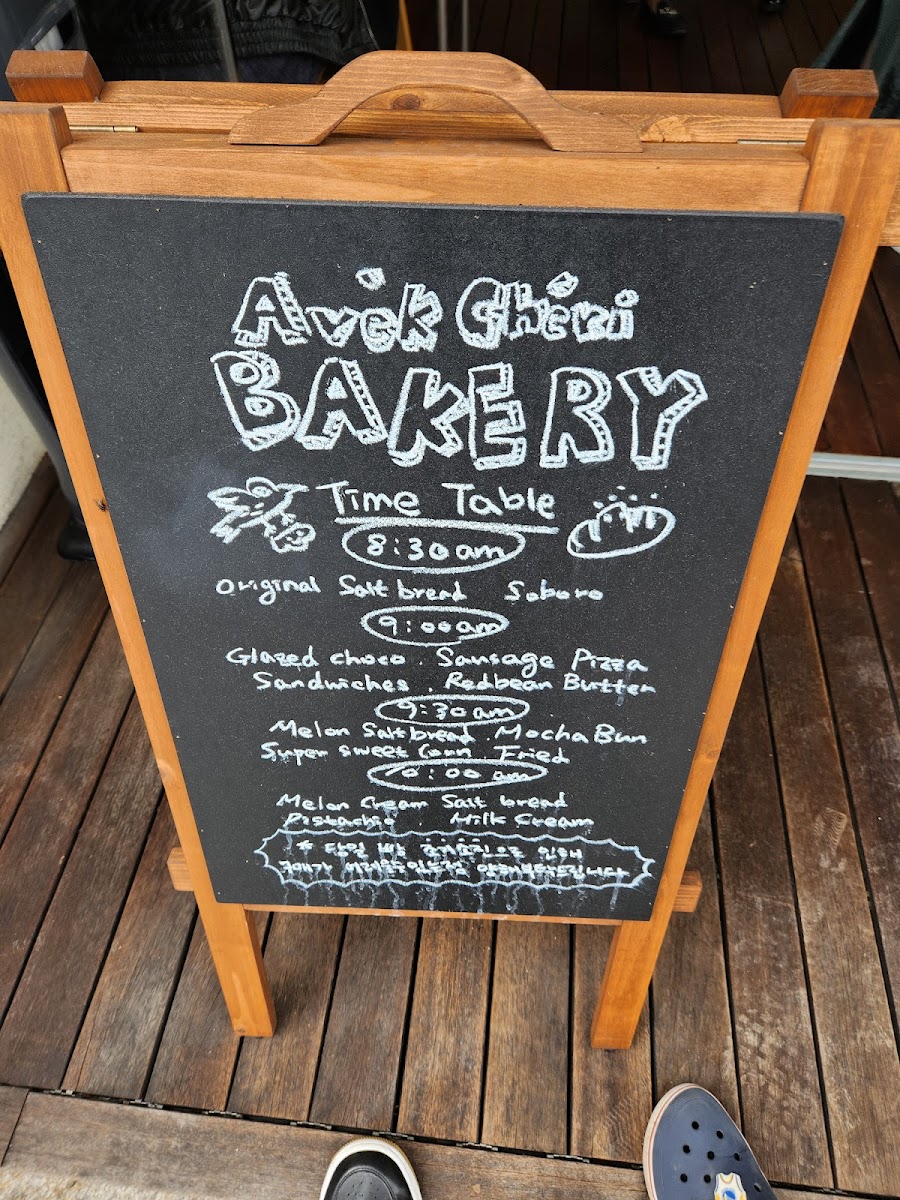 Avek Chéri
BAKERY
Time Table
8:30am
Original Salt bread Soboro
9:00am
Glazed choco . Sausage Pizza
Sandwiches . Redbean Butter
9:30am
Melon Salt bread . Mocha Bun
Super sweet Corn . Fried
10:00 am
Melon Cream Salt bread
Pistachio Milk Cream
* 당일 조기소진으로 인해
구매가 어려울 수 있는점 양해부탁드립니다